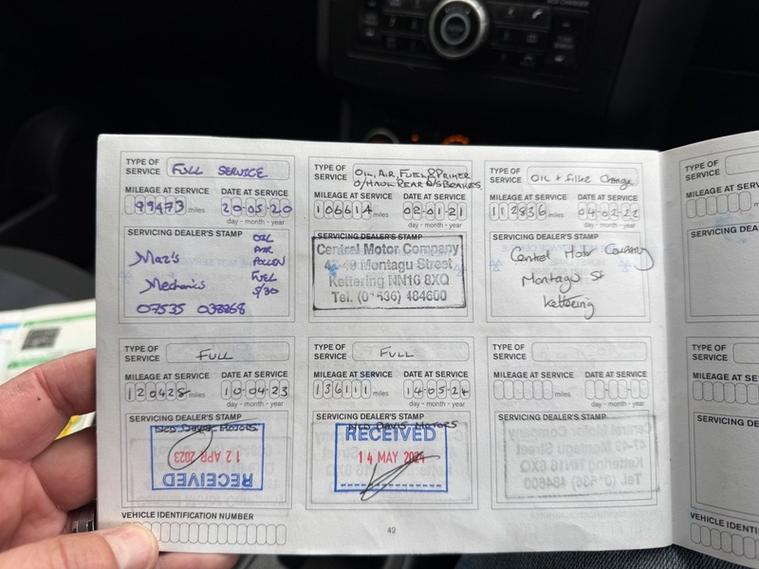 TYPE OF SERVICE FULL SERVICE
MILEAGE AT SERVICE DATE AT SERVICE
99473 miles 20-05-20
day - month - year
SERVICING DEALER'S STAMP
OIL
AIR
POLLEN
FUEL
5/30
Maz's
Mechanics
07535
TYPE OF SERVICE OIL, AIR, FUEL & PRIMER
O/HAUL REAR O/S BRAKES
MILEAGE AT SERVICE DATE AT SERVICE
106614 miles 02-01-21
day - month - year
SERVICING DEALER'S STAMP
Central Motor Company
47-49 Montagu Street
Kettering NN16 8XQ
Tel. (01536) 484600
TYPE OF SERVICE Oil & filter Change
MILEAGE AT SERVICE DATE AT SERVICE
112936 miles 04-02-22
day - month - year
SERVICING DEALER'S STAMP
Central Motor Company
Montagu St
Kettering
TYPE OF SERVICE FULL
MILEAGE AT SERVICE DATE AT SERVICE
120428 miles 10-04-23
day - month - year
SERVICING DEALER'S STAMP
DAVIS MOTORS
12 APR 2023
RECEIVED
TYPE OF SERVICE FULL
MILEAGE AT SERVICE DATE AT SERVICE
136111 miles 14-05-24
day - month - year
SERVICING DEALER'S STAMP
DAVIS MOTORS
RECEIVED
14 MAY 2024
TYPE OF SERVICE
MILEAGE AT SERVICE DATE AT SERVICE
miles
day - month - year
SERVICING DEALER'S STAMP
VEHICLE IDENTIFICATION NUMBER
42
TYPE OF SERVICE
MILEAGE AT SE
SERVICING DE
TYPE OF SERVICE
MILEAGE AT SE
SERVICING DE
VEHICLE IDENTI